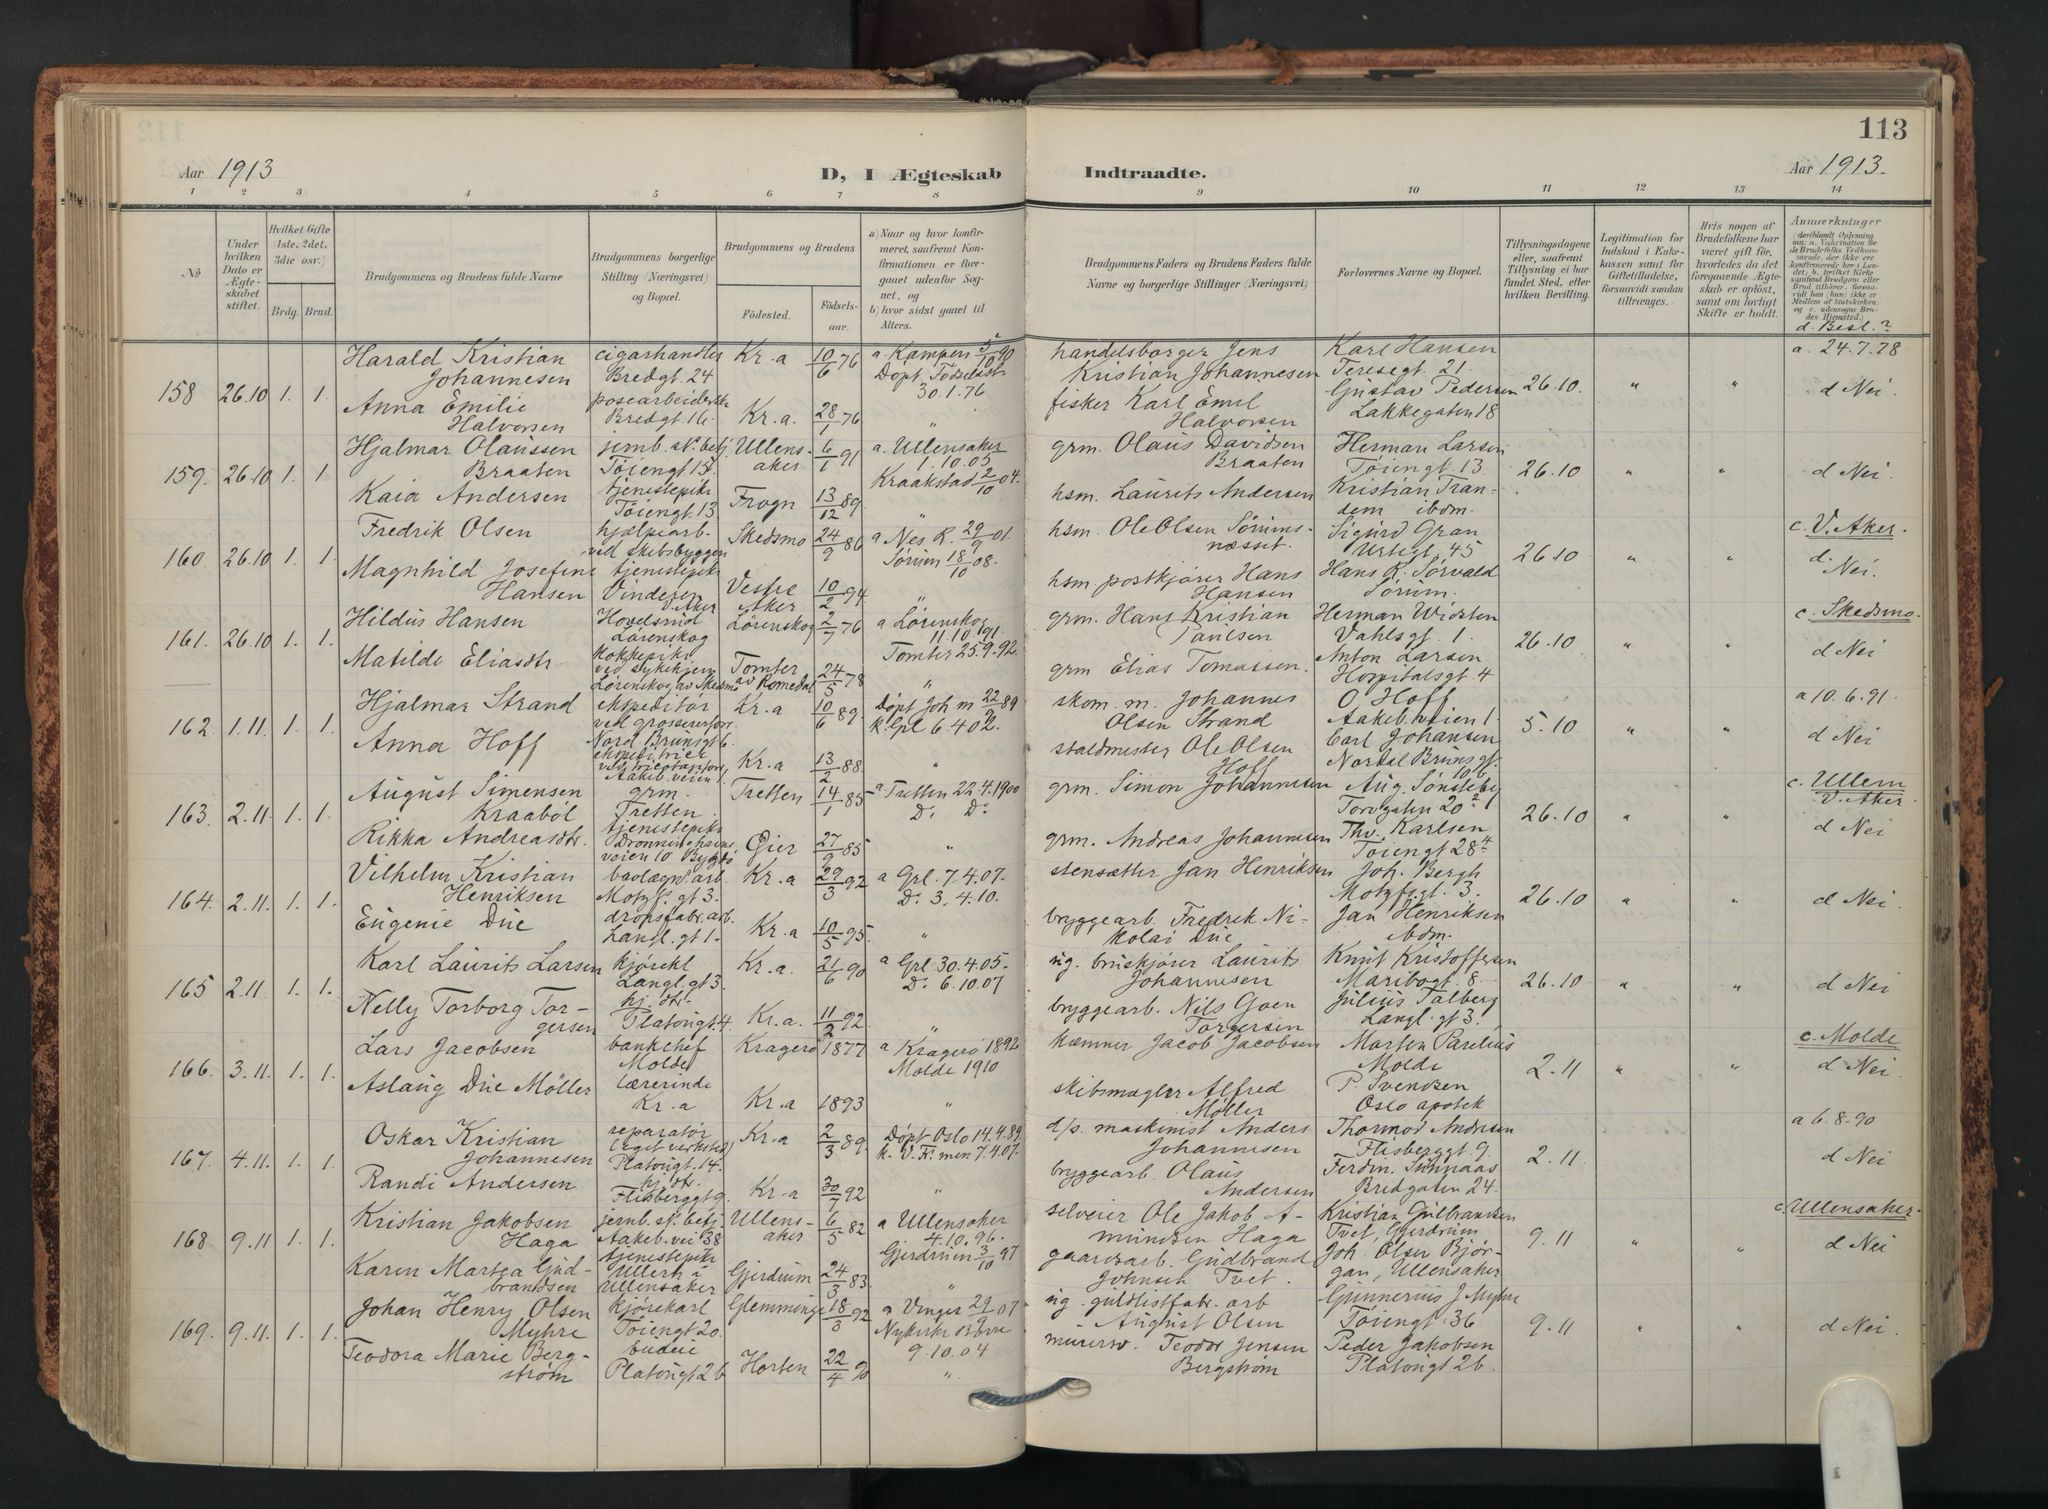 113
Aar 1913
D, I Ægteskab
Indtraadte.
Aar 1913.
1 2 3 4 5 6 7 8 9 10 11 12 13 14
No
Under hvilken Dato er Ægteskabet stiftet.
Hvilket Gifte (1ste, 2det, 3die osv.)
Brdg. Brud.
Brudgommens og Brudens fulde Navne
Brudgommens borgerlige Stilling (Næringsvei) og Bopæl.
Brudgommens og Brudens
Fødested.
Fødselsaar.
a) Naar og hvor konfirmeret, saafremt Konfirmationen er foregaaet udenfor Sognet, og
b) hvor sidst gaaet til Alters.
Brudgommens Faders og Brudens Faders fulde Navne og borgerlige Stillinger (Næringsvei)
Forlovernes Navne og Bopæl.
Tillysningsdagene eller, saafremt Tillysning ei har fundet Sted, efter hvilken Bevilling.
Legitimation for Indskud i Enkekassen samt for Giftetilladelse, forsaavidt saadan tiltrænges.
Hvis nogen af Brudefolkene har været gift før, hvorledes da det foregaaende Ægteskab er opløst, samt om lovligt Skifte er holdt.
Anmærkninger
d. Besl.?
158 26.10 1. 1.
Harald Kristian Johannesen
cigarhandler Bredgt. 24
Kr.a 10/6 76
a Kampen 5/10 90
Døpt
30.1.76
handelsborger Jens Kristian Johannesen
Karl Hansen Teresegt. 21.
26.10 " "
a. 24.7.78
d Nei.
Anna Emilie Halvorsen
posearbeiderske Bredgt. 16.
Kr.a. 28/1 76 "
fisker Karl Emil Halvorsen
Gustav Pedersen Lakkegaten 18
159. 26.10 1. 1.
Hjalmar Olaussen Braaten
jernb. st. betj. Tøiengt. 13
Ullensaker 6/1 91
a. Ullensaker 1.10.05
grm. Olaus Davidsen Braaten
Herman Larsen Tøiengt. 13.
26.10 " "
d Nei.
Kaia Andersen
tjenestepike Tøiengt. 13.
Frogn 13/12 89
Kraakstad 2/10 04. "
hsm. Laurits Andersen
Kristian Trandem ibdm.
160. 26.10 1. 1.
Fredrik Olsen
hjælpearb. ved skibsbyggeri
Skedsmo 24/9 86
a Nes R. 29/9 01.
hsm. Ole Olsen Sørumsnæsset.
Sigurd Gran Urtegt. 45
26.10 " "
c. V. Aker.
d. Nei.
Magnhild Josefine Hansen
tjenestepike Vinderen V. Aker
Vestre Aker 10/2 94
Sørum 18/10 08. "
hsm. postkjører Hans Hansen
Hans K. Sørvald Sørum.
161. 26.10 1. 1.
Hildus Hansen
Hovslmid Lørenskog
Lørenskog 2/7 76
a Lørenskog 11.10.191
grm. Hans Kristian Paulsen
Herman Widsten Vahlsgt. 1.
26.10 " "
c. Skedsmo.
d Nei
Matilde Eliasdtr.
kokkepike ved sykehjem Lørenskog av Skedsmo
Tomter av Romedal 24/5 78
Tomter 25.9.92. "
grm Elias Tomassen.
Anton Larsen Hospitalsgt. 4
162. 1.11. 1. 1.
Hjalmar Strand
ekspeditør ved grossererforr. Nord. Brunsgt 6.
Kr.a 10/6 89.
Døpt Joh m 22/9 89
k. Grl 6.4 02.
skom. m. Johannes Olsen Strand
O. Hoff Aakeb. veien 1.
5.10 " "
a 10.6.91.
d Nei
Anna Hoff
ekspeditrice ved tricotageforr. Aakeb. veien 1.
Kr.a 13/2 88 "
staldmester Ole Olsen Hoff
Carl Johansen Nordal Brunsgt. 10 6
163. 2.11. 1. 1.
August Simensen Kraabøl
grm. Tretten.
Tretten 14/1 85
a Tretten 22.4.1900
Do Do
grm. Simon Johannesen
Aug. Sønsteby Torvgaten 20 2
26.10 " "
c. Ullern V. Aker.
d Nei
Rikka Andreasdtr.
tjenestepike Dronninghavnsveien 10 Bygdø
Øier 27/9 85 "
grm. Andreas Johannesen
Thv. Karlsen Tøiengt 28 4
164. 2.11. 1. 1.
Vilhelm Kristian Henriksen
arb. Motzf. gt 3.
Kr.a 29/3 92
a Grl. 7.4.07.
Do 3.4.10.
stensætter Jan Henriksen
Joh. Bergh Motzfs. gt. 3.
26.10 " "
d Nei.
Eugenie Due
dropsfabr. arb. Langl. gt 1.
Kr.a 10/5 95. "
bryggearb. Fredrik Nikolai Due
Jan Henriksen ibdm.
165 2.11. 1. 1.
Karl Laurits Larsen
kjørekl Langl. gt 3.
Kr.a. 21/6 90
a Grl 30.4.05.
Do 6.10.07
ug. bruskjører Laurits Johannesen
Knut Kristoffersen Maribogt. 8.
26.10 " "
d Nei
Nelly Torborg Torgersen
hj. dtr. Platousgt. 4.
Kr.a. 11/2 92. "
bryggearb. Nils Goen Torgersen
Julius Talberg Langl. gt 3.
166. 3.11. 1. 1.
Lars Jacobsen
bankchef Molde
Kragerø 1877
a Kragerø 1892
Molde 1910
kæmner Jacob Jacobsen
Morten Parelius Molde
2.11 " "
c. Molde
d Nei.
Aslaug Due Möller
lærerinde Kr.a
Kr.a 1893 "
skibsmægler Alfred Møller
P. Svendsen Oslo apotek
167. 4.11. 1. 1.
Oskar Kristian Johannesen
reparatør (eget verksted) Platousgt. 14.
Kr.a 2/3 89.
Døpt Oslo 14.4.89.
k. V. Fr. men 7.4.07.
d/s. maskinist Anders Johannesen
Thormod Andresen Flisberggt 9.
2.11.
a 6.8.90
d Nei
Randi Andersen
hj. dtr. Flisberggt 9.
Kr.a 30/7 92 "
bryggearb. Olaus Andersen
Ferdin. Bredgaten 24.
168. 9.11 1. 1.
Kristian Jakobsen Haga
jernb. st. betj. Aakeb. vei 38
Ullensaker 6/5 82
a Ullensaker 4.10.96.
selveier Ole Jakob Amundsen Haga
Kristian Gulbrandsen Tvet, Gjerdrum
9.11 " "
c. Ullensaker.
d Nei
Karen Martea Gudbrandsen
tjenestepike Ullern i Ullensaker
Gjerdrum 24/3 83
Gjerdrum 3/10 97 "
gaardsarb. Gudbrand Johnsen Tvet.
Joh. Olsen Bjørgan, Ullensaker
169. 9.11. 1. 1.
Johan Henry Olsen Myhre
kjørekarl Tøiengt 20.
Glemminge 18/3 92
a Vinger 29/9 07
ug. guldlistfabr. arb August Olsen
Gunnerius J Myhre Tøiengt. 36
9.11 " "
d Nei.
Teodora Marie Bergstrøm
budeie Platousgt 2b
Horten 22/4 90
Nykirke Borre 9.10.04 "
murersv. Teodor Jensen Bergstrøm
Peder Jakobsen Platousgt 2b.